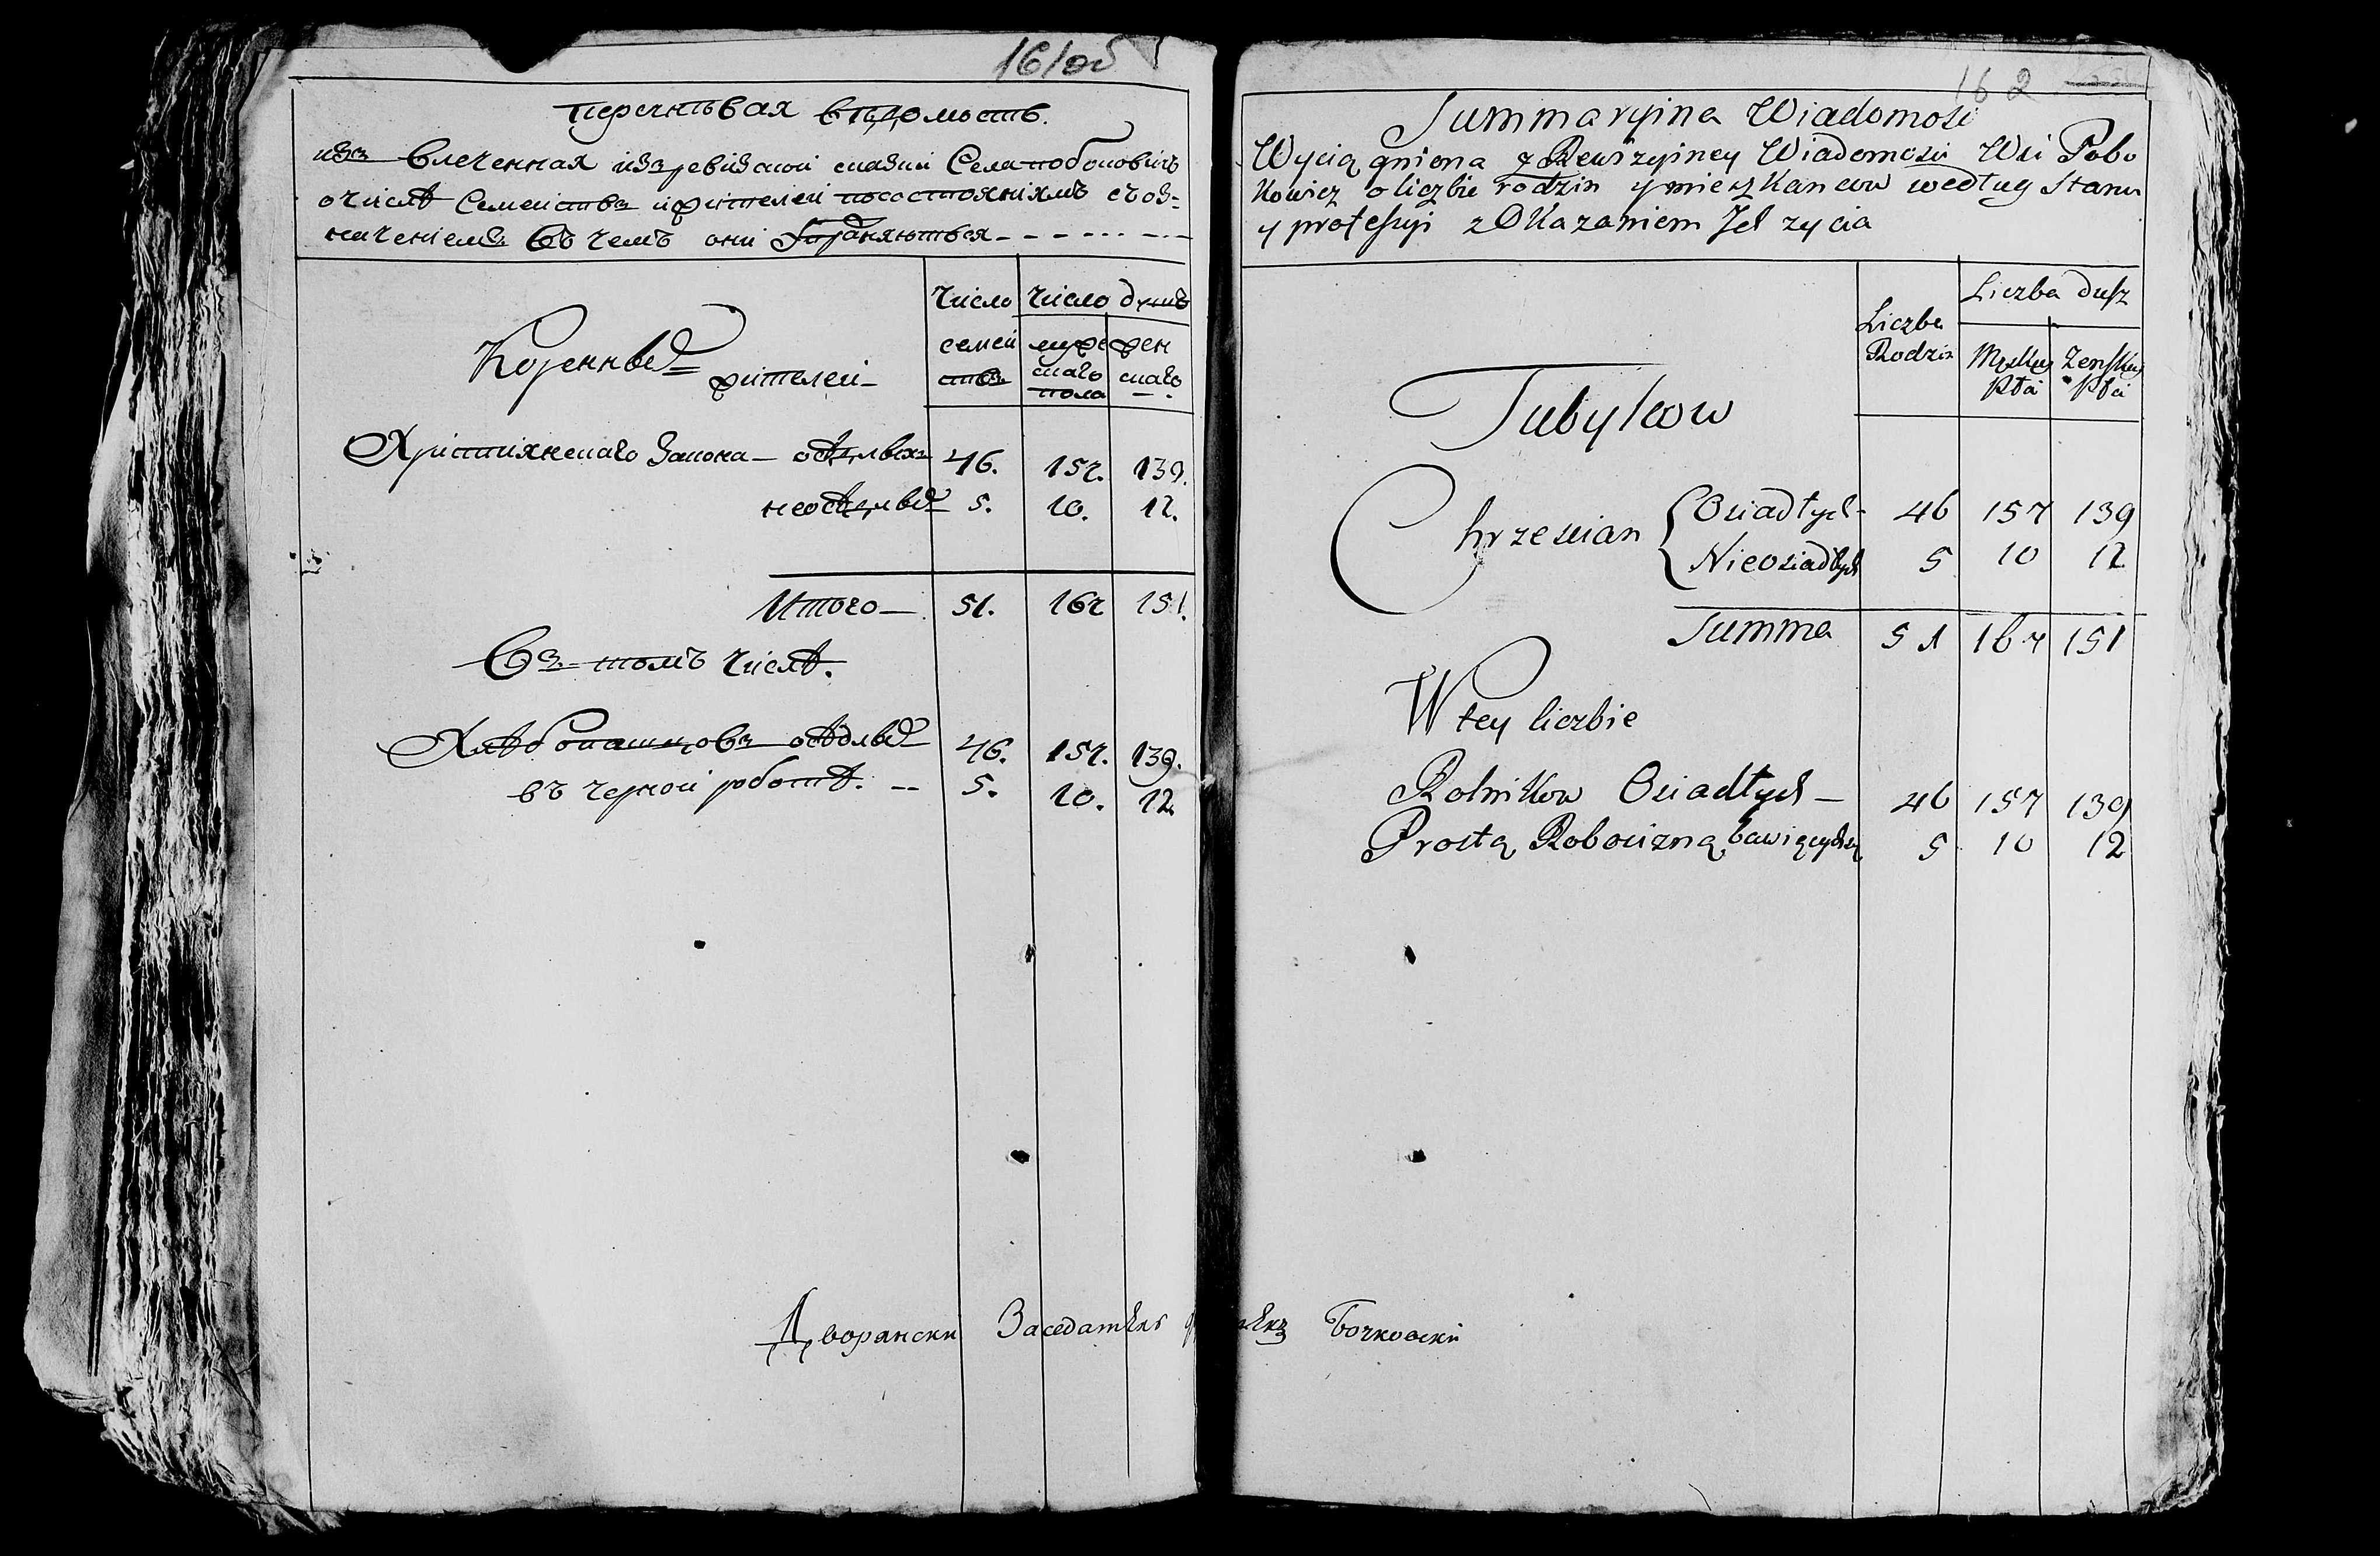 161 об
Перечневая вѣдомость
изъ влеченная изъ ревизской сказки Села побоковичь
о числѣ Семействъ и жителей по состояніямъ съ оз=
наченіемъ въ чемъ они упражняються
Число Число душъ
Коренныхъ жителей
семей муже жен
ствъ скаго скаго
пола
Христіянскаго Закона осѣдлыхъ 46. 157. 139.
неосѣдлыхъ 5. 10. 12.
Итого 51. 167 151.
Въ томъ числѣ.
Хлѣбопашцовъ осѣдлыхъ 46. 157. 139.
въ черной роботѣ. 5. 10. 12.
Дворянски Заседатель
162
Summaryina Wiadomość
Wyciągniona z Rewizyiney Wiadomości Wsi Pobo
kowicz o liczbie rodzin y mieszkancow według stanu
y profesyi z Okazaniem Ich zycia
Liczba dusz
Liczba
Rodzin Męskiey Zenskiey
Płci Płci
Tubylcow
Chrzescian { Osiadłych 46 157 139
Nieosiadłych 5 10 12
Summa 51 167 151
W tey liczbie
Rolnikow Osiadłych — 46 157 139
Prostą Robocizną bawiących się 5 10 12
Бочковски